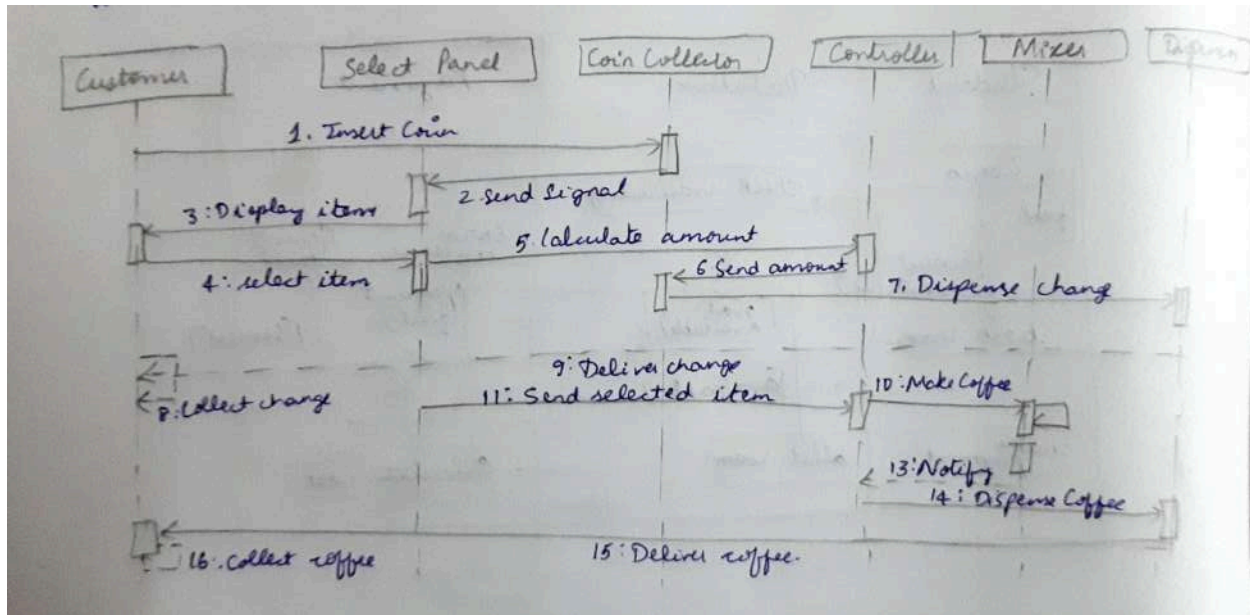 Customer
Select Panel
Coin Collector
Controller
Mixer
1. Insert Coin
2. Send Signal
3: Display item
4: select item
5. Calculate amount
6 Send amount
7. Dispense change
9: Deliver change
8: Collect change
10: Make Coffee
11: Send selected item
13: Notify
14: Dispense Coffee
15: Deliver coffee.
16: Collect coffee